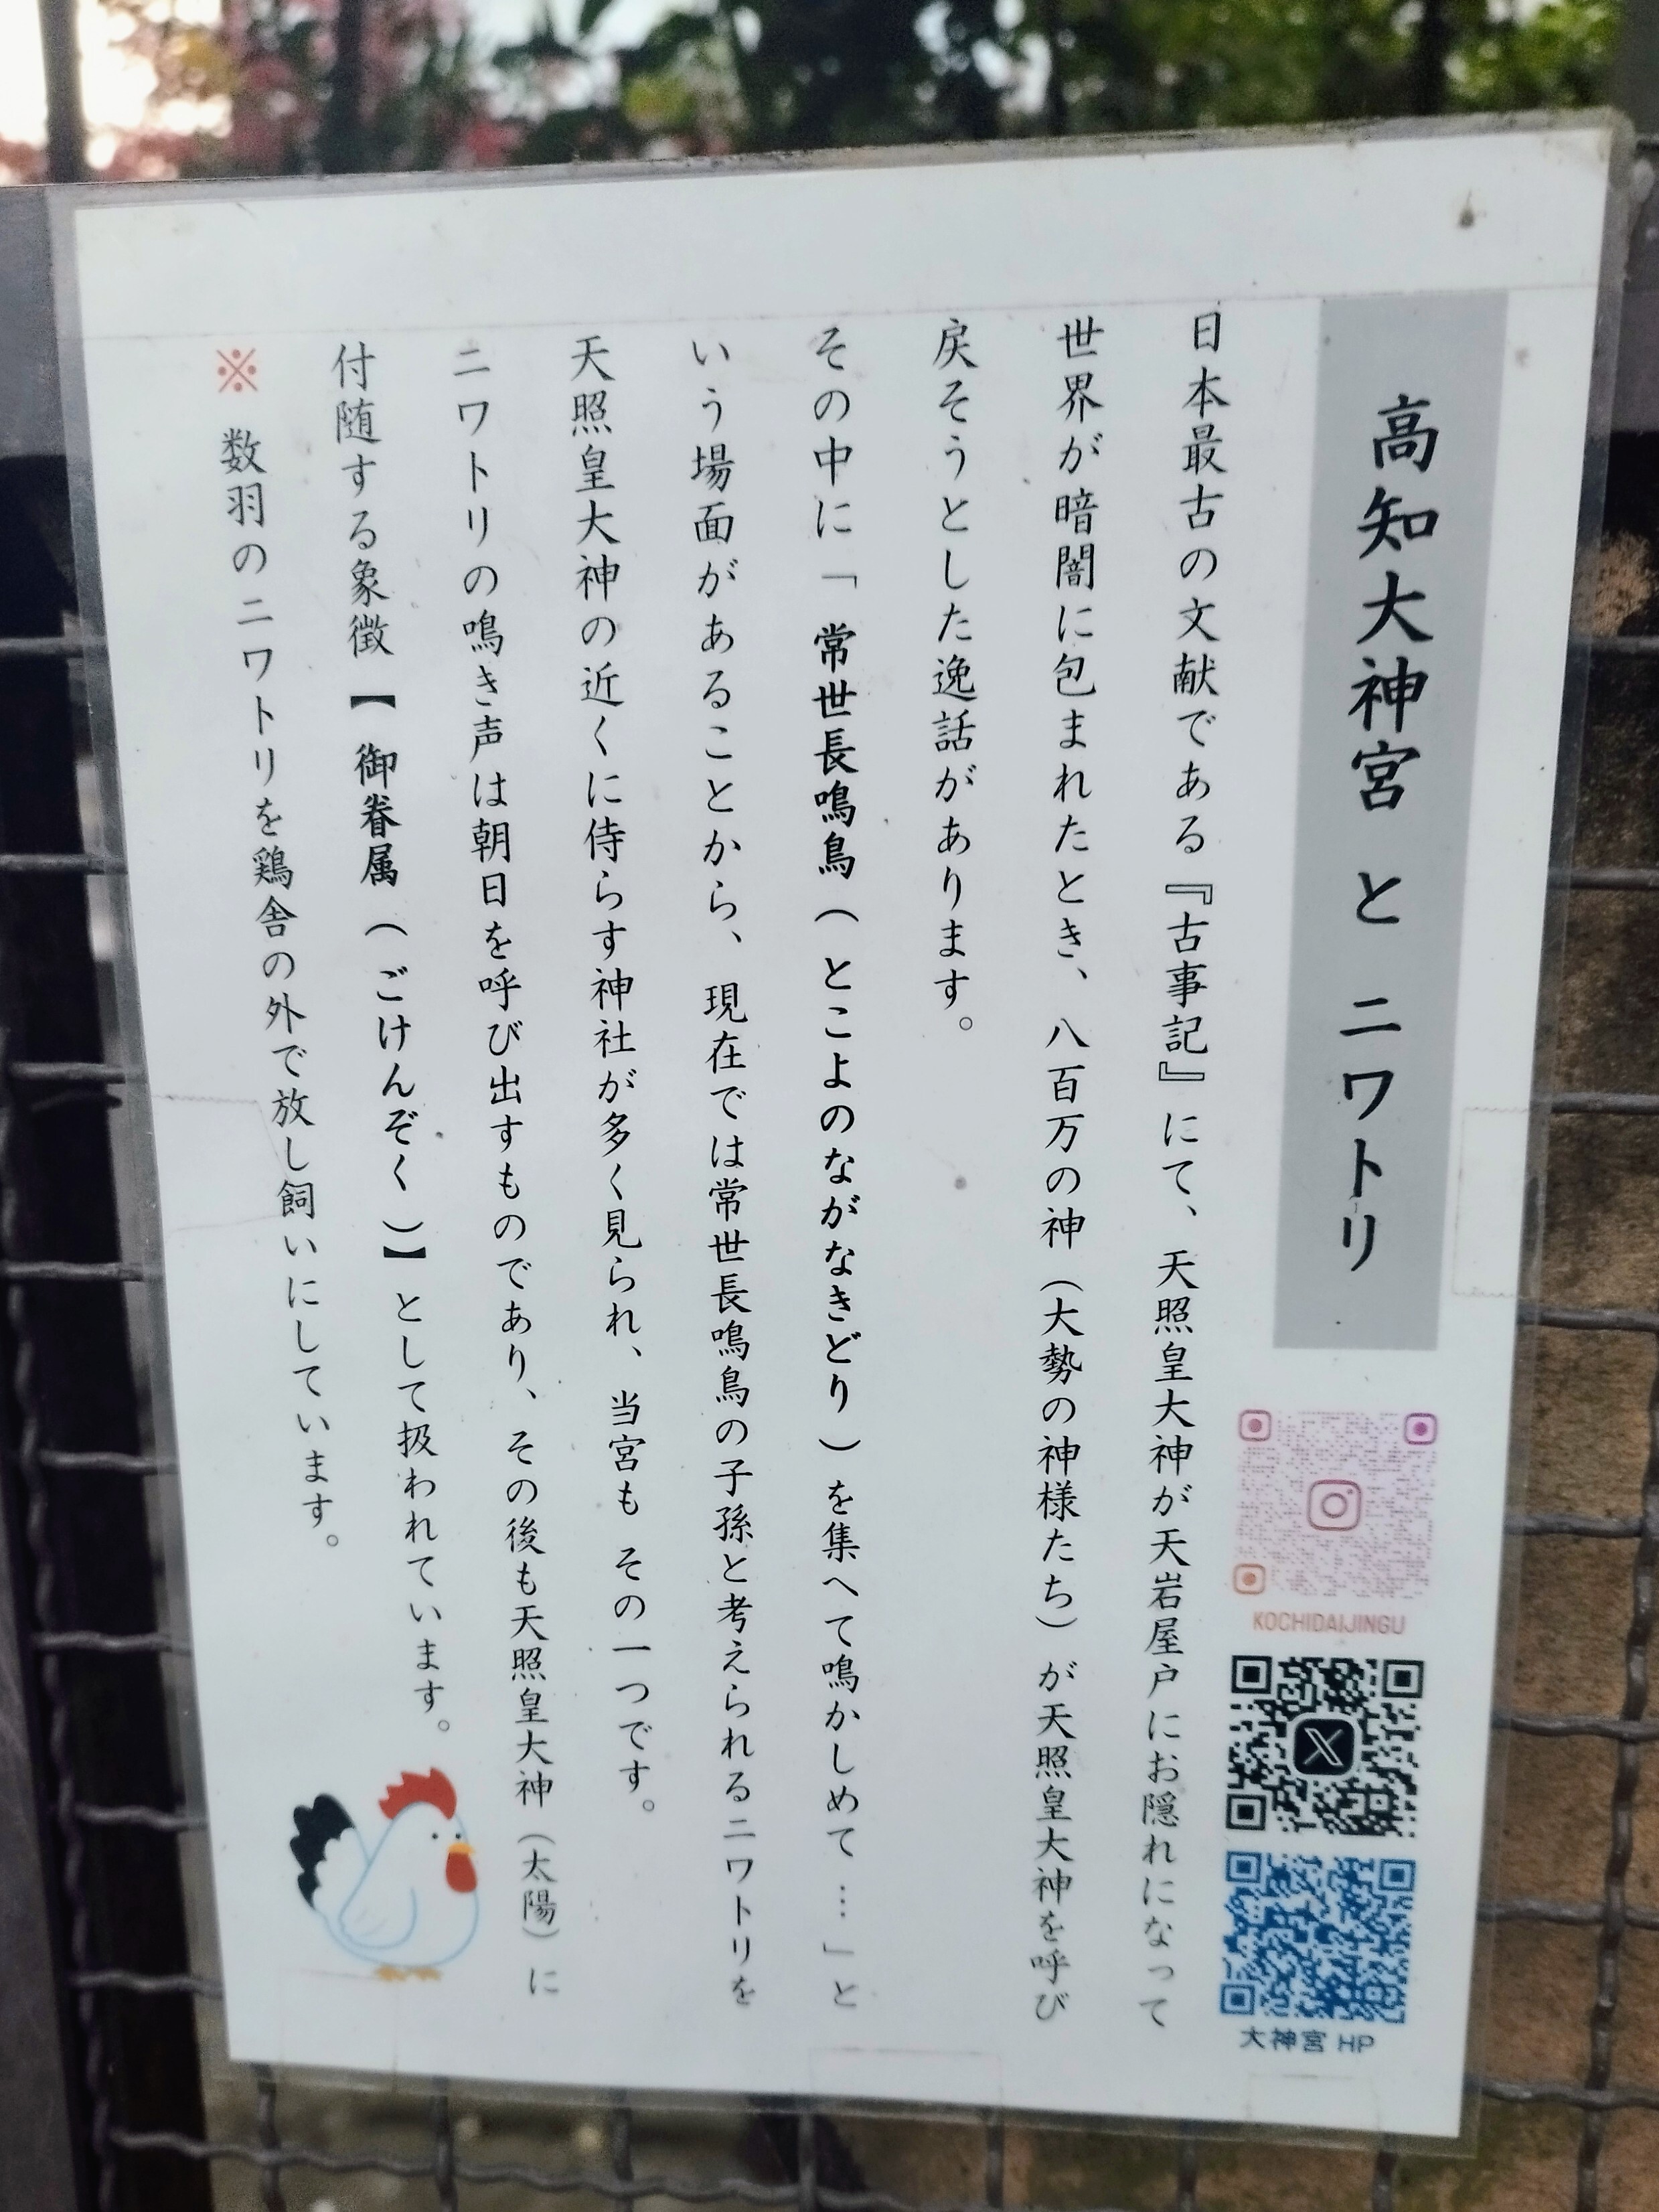 高知大神宮 と ニワトリ
日本最古の文献である『古事記』にて、天照皇大神が天岩屋戸にお隠れになって
世界が暗闇に包まれたとき、八百万の神（大勢の神様たち）が天照皇大神を呼び
戻そうとした逸話があります。
その中に「常世長鳴鳥（とこよのながなきどり）を集へて鳴かしめて…」と
いう場面があることから、現在では常世長鳴鳥の子孫と考えられるニワトリを
天照皇大神の近くに侍らす神社が多く見られ、当宮も その一つです。
ニワトリの鳴き声は朝日を呼び出すものであり、その後も天照皇大神（太陽）に
付随する象徴【御眷属（ごけんぞく）】として扱われています。
※ 数羽のニワトリを鶏舎の外で放し飼いにしています。
KOCHIDAIJINGU
大神宮 HP